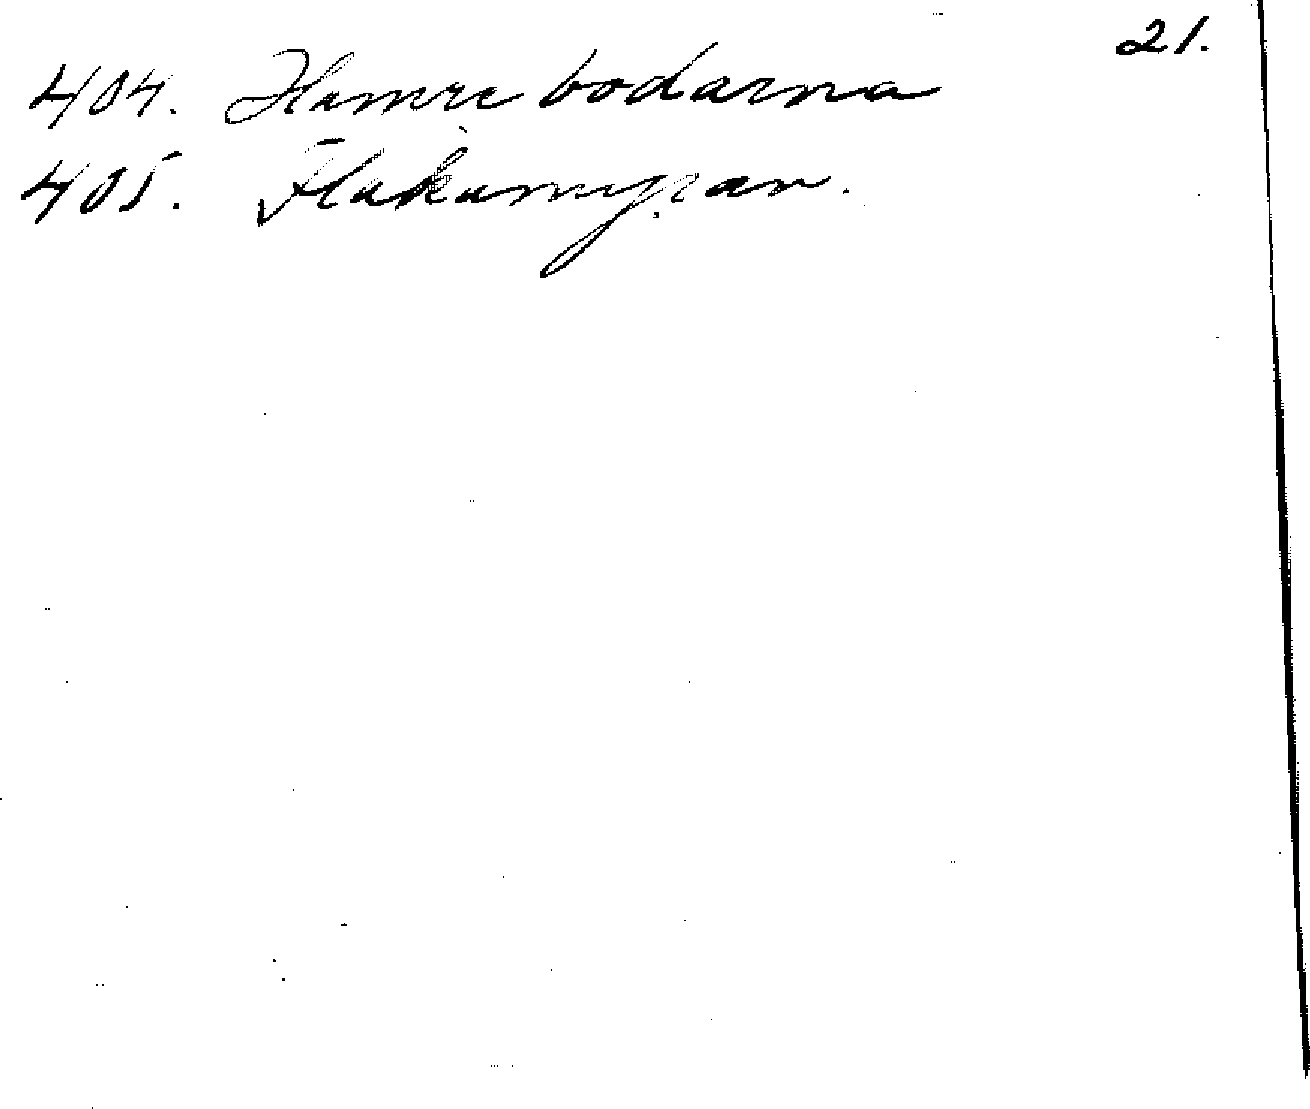 21.
404. Hamre bodarna
405. Flakamyran.